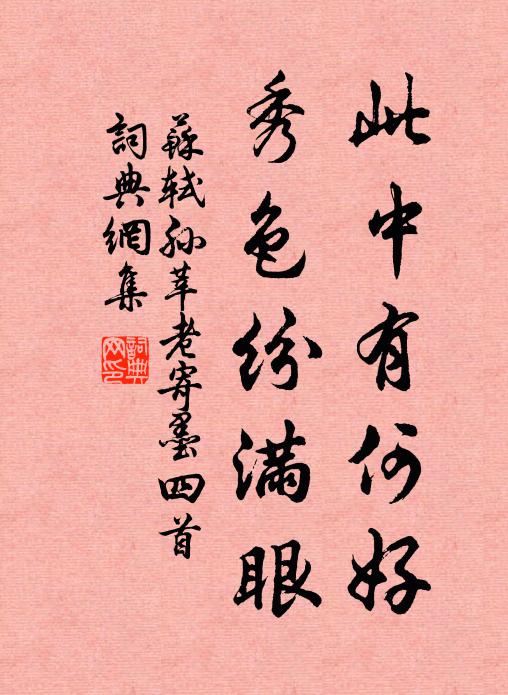 此中有何好
秀色紛滿眼
蘇軾孫莘老寄墨四首
詞典網集
詞典網印